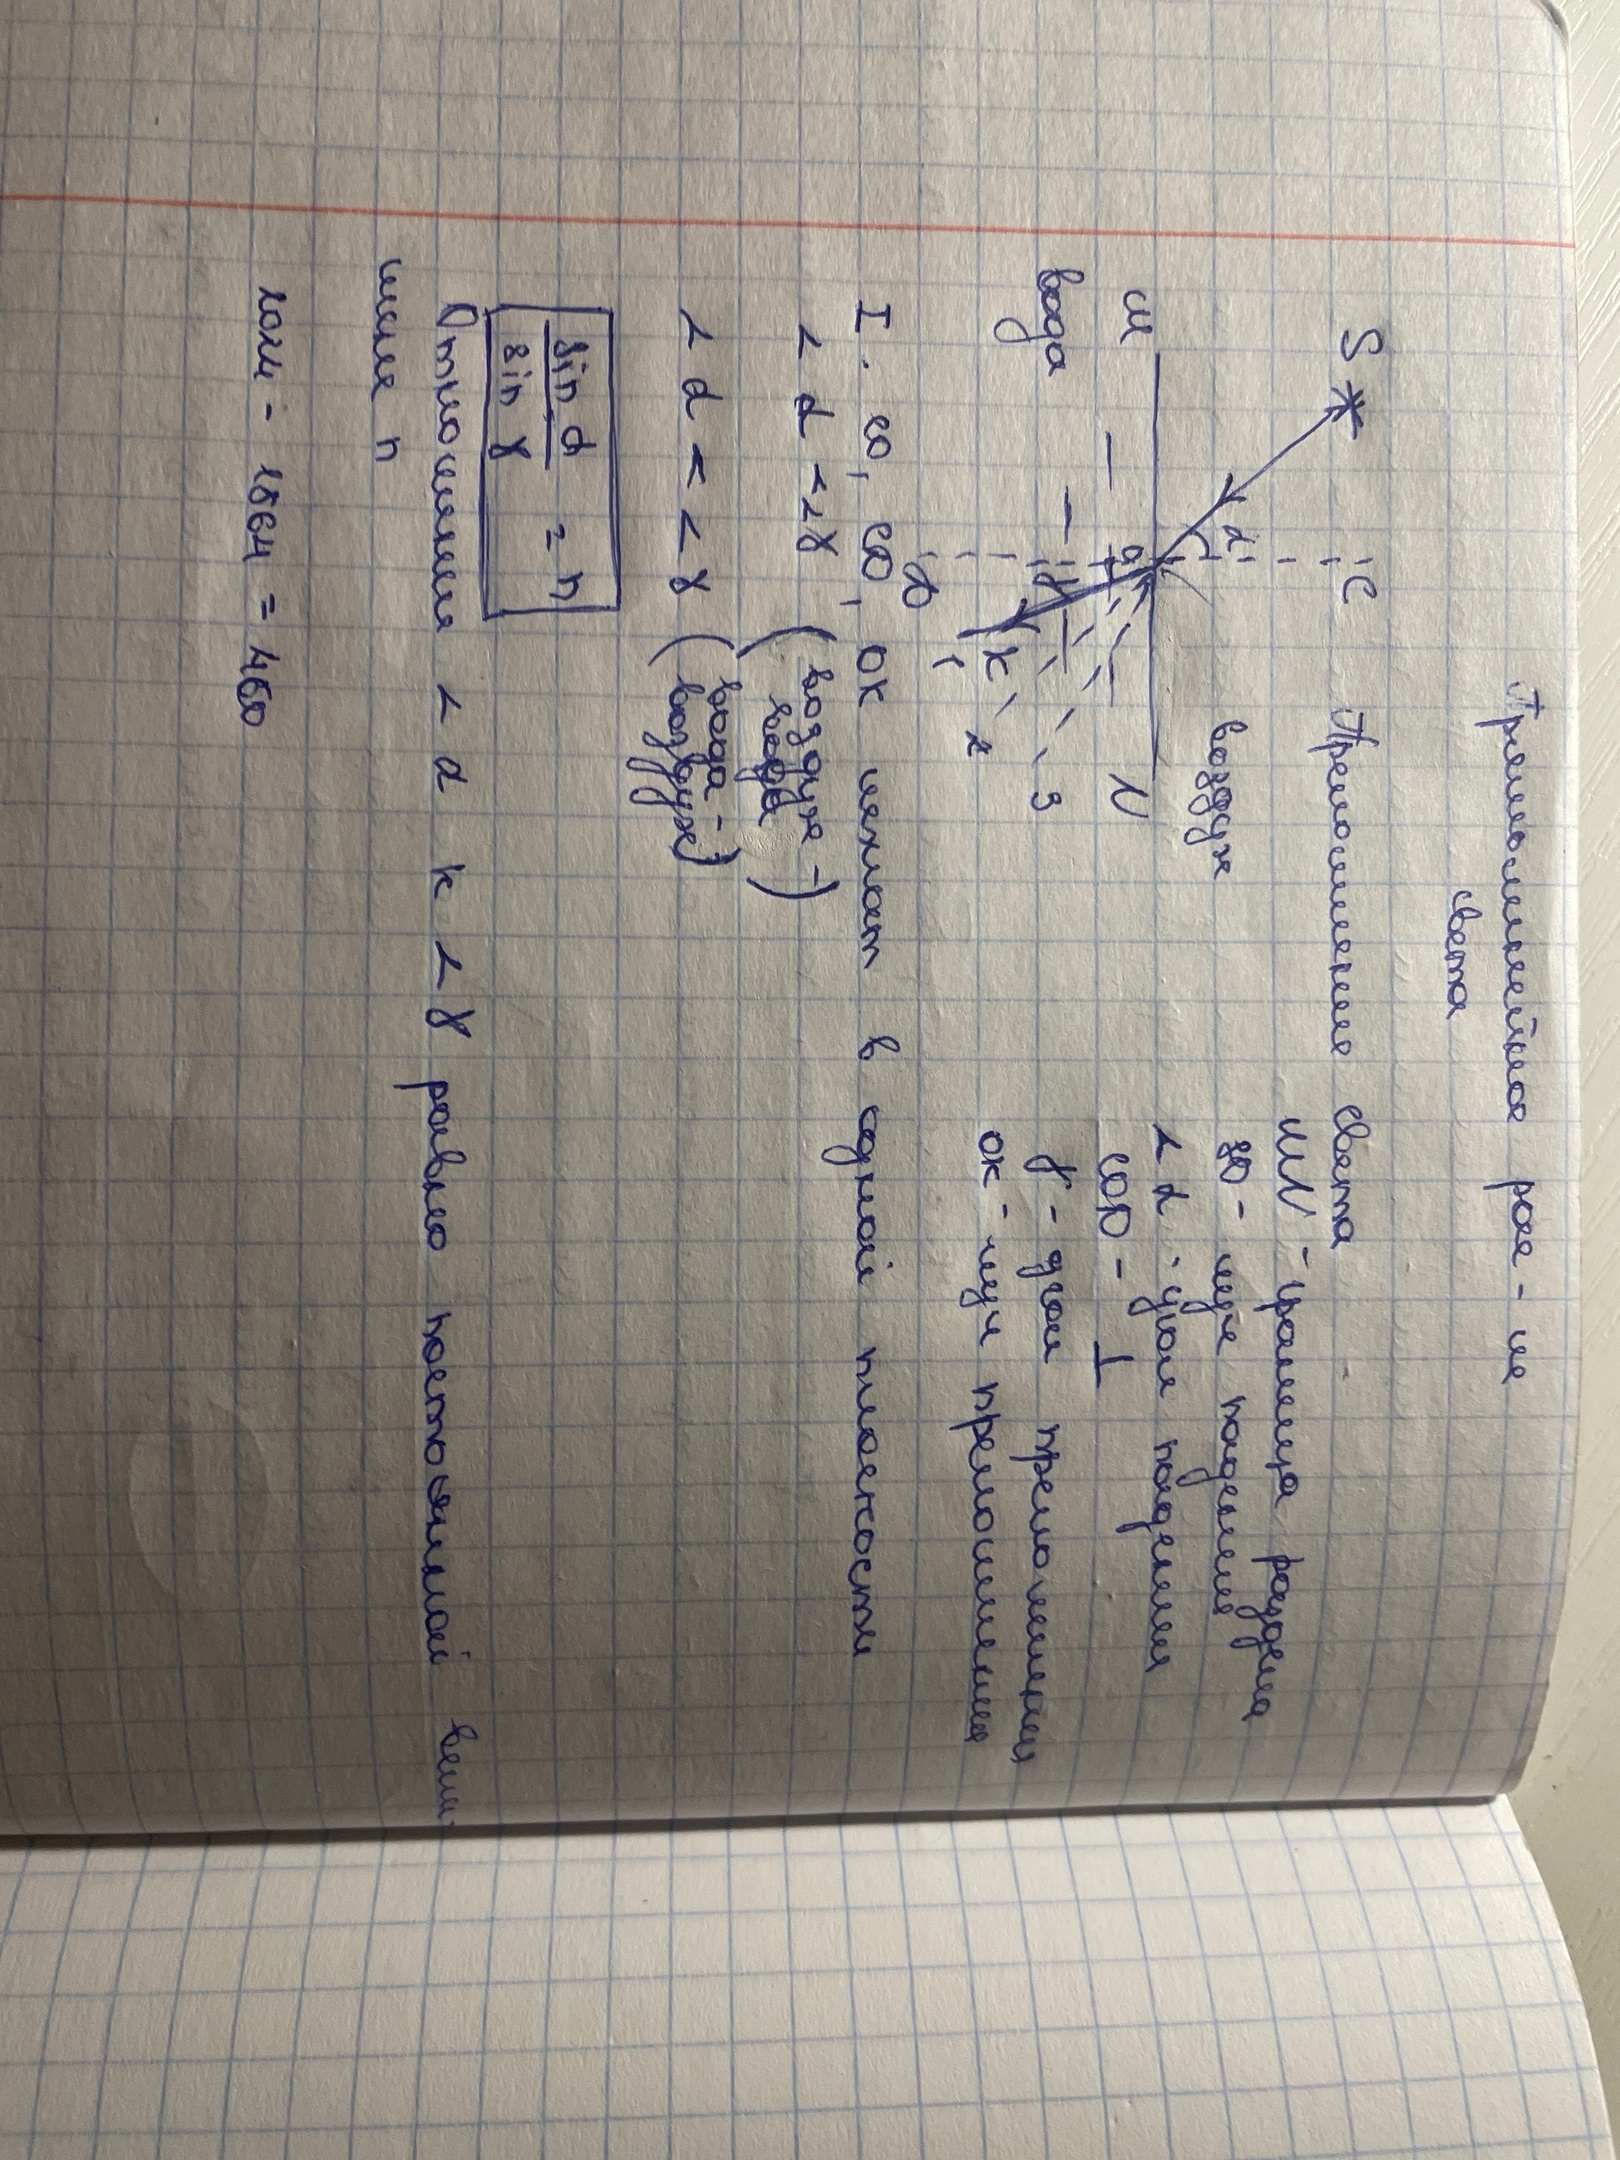 Прямолинейное рас-ие
света
S C Преломление света
MN - граница раздела
α воздух SO - луч падения
∠ α - угол падения
M O N COD - ⊥
вода γ 3 γ - угол преломления
K 2 OK - луч преломления
1
D
I. CO, CD, OK лежат в одной плоскости
∠ α < ∠ γ (воздух -
вода)
∠ α < ∠ γ (вода -
воздух)
sin α / sin γ = n
Отношение ∠ α к ∠ γ равно постоянной вели-
чине n
2024 - 1564 = 460